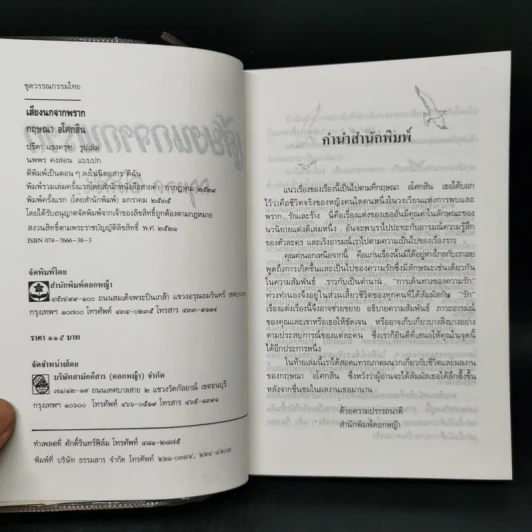 ชุดวรรณกรรมไทย
เสียงนกจากพราก
กฤษณา อโศกสิน
ปรีดา แรงครุฑ รูปเล่ม
นพพร คงสอน แบบปก
ตีพิมพ์เป็นตอน ๆ ลงในนิตยสาร ดิฉัน
พิมพ์ครั้งแรก (โดยสำนักพิมพ์) มกราคม
โดยได้รับอนุญาตจัดพิมพ์จากเจ้าของลิขสิทธิ์ถูกต้องตามกฎหมาย
สงวนลิขสิทธิ์ตามพระราชบัญญัติลิขสิทธิ์ พ.ศ. ๒๕๒๑
ISBN 074-7666-38-3
จัดพิมพ์โดย
สำนักพิมพ์ดอกหญ้า
ถนนสมเด็จพระปิ่นเกล้า แขวงอรุณอมรินทร์
กรุงเทพฯ ๑๐๗๐๐ โทรศัพท์
ราคา ๑๑๕ บาท
จัดจำหน่ายโดย
บริษัทสามัคคีสาร (ดอกหญ้า) จำกัด
ถนนเทศบาลสาย ๒ แขวงวัดกัลยาณ์ เขตธนบุรี
กรุงเทพฯ ๑๐๖๐๐ โทรศัพท์
ทำเพลตที่ ศักดิ์รินทร์ฟิล์ม โทรศัพท์
พิมพ์ที่ บริษัท ธรรมสาร จำกัด โทรศัพท์
คำนำสำนักพิมพ์
แนวเรื่องของเรื่องนี้เป็นไปตามที่กฤษณา อโศกสิน เธอได้บอก
ไว้ว่าคือชีวิตจริงของหญิงคนใดคนหนึ่งในวงเวียนแห่งการพบและ
พราก.. รักและร้าง นี่คือเรื่องแต่งของเธออันมีคุณค่าในลักษณะของ
นวนิยายแต่งดีเล่มหนึ่ง . อันจะพาเราไปปะทะกับอารมณ์ความรู้สึก
ของตัวละคร และเริงอารมณ์เราไปตามความเป็นไปของเรื่องราว
คุณค่านอกเหนือจากนี้ คือแก่นเรื่องนั้นมิได้อยู่ห่างไกลกับเราเลย
พูดถึงการเกิดขึ้นและเป็นไปของความรักซึ่งมีลักษณะเช่นเดียวกัน
ในความสัมพันธ์ ราวกับเป็นตำนาน "การเดินทางของความรัก"
ท่วงทำนองจึงอยู่ในส่วนเสี้ยวชีวิตของทุกคนที่ได้สัมผัสกับ "รัก"
เรื่องแต่งเรื่องนี้จึงอาจช่วยขยาย อธิบายความสัมพันธ์ ภาวะอารมณ์
ของคุณและเขาหรือเธอให้ชัดเจน หรืออาจเก็บเกี่ยวบางสิ่งบางอย่าง
ตามประสบการณ์ของแต่ละคน ซึ่งเราก็ยินดีที่เสนอให้คุณในจุดนี้
ได้อีกประการหนึ่ง
ในท้ายเล่มนี้เราได้สอดแทรกภาคผนวกเกี่ยวกับชีวิตและผลงาน
ของกฤษณา อโศกสิน ซึ่งหวังว่าผู้อ่านจะได้สัมผัสเธอได้ลึกซึ้งขึ้น
หลังจากชื่นชมในผลงานเธอมานาน
ด้วยความปรารถนาดี
สำนักพิมพ์ดอกหญ้า